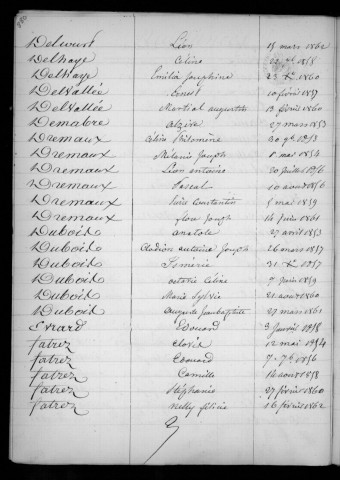 Delcourt Léon 15 mars 1862
Delhaye Céline 1858
Delhaye Emilia Josephine 23 Xbre 1860
Delvallée Ernest 10 février 1857
Delvallée Martial augustin 13 février 1860
Demabre Alzire 27 mars 1853
Dremaux Célina Philomène 30 9bre 1853
Dremaux Mélanie Joseph 1 mai 1854
Dremaux Léon antoine 20 Juillet 1856
Dremaux Pascal 10 aout 1856
Dremaux Louis Constantin 5 mai 1859
Dremaux flore Joseph 14 Juin 1861
Dubois anatole 27 avril 1853
Dubois Clodion antoine Joseph 26 mars 1857
Dubois 31 Xbre 1857
Dubois octavie Céline 7 Juin 1859
Dubois Marie Sylvie 21 aout 1860
Dubois Auguste Jean baptiste 27 mars 1861
Evrard Edouard 3 Janvier 1858
fatrez Clovis 12 mai 1854
fatrez Edouard 7 7bre 1856
fatrez Camille 14 aout 1858
fatrez Stéphanie 27 février 1860
fatrez Nelly félicie 16 février 1862